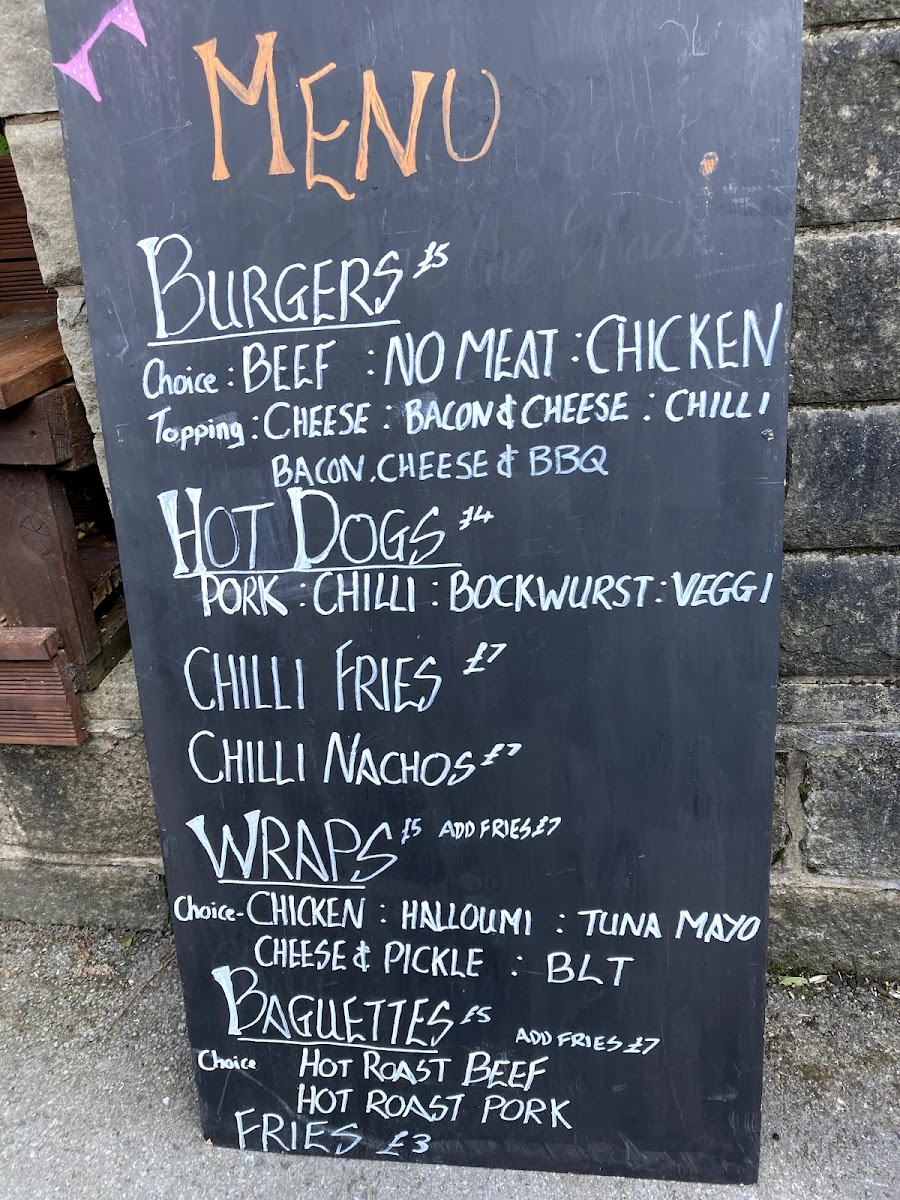 MENU
BURGERS £5
Choice: BEEF : NO MEAT : CHICKEN
Topping: CHEESE : BACON & CHEESE : CHILLI
BACON, CHEESE & BBQ
HOT DOGS £4
PORK : CHILLI : BOCKWURST : VEGGI
CHILLI FRIES £7
CHILLI NACHOS £7
WRAPS £5 ADD FRIES £7
Choice- CHICKEN : HALLOUMI : TUNA MAYO
CHEESE & PICKLE : BLT
BAGUETTES £5 ADD FRIES £7
Choice HOT ROAST BEEF
HOT ROAST PORK
FRIES £3